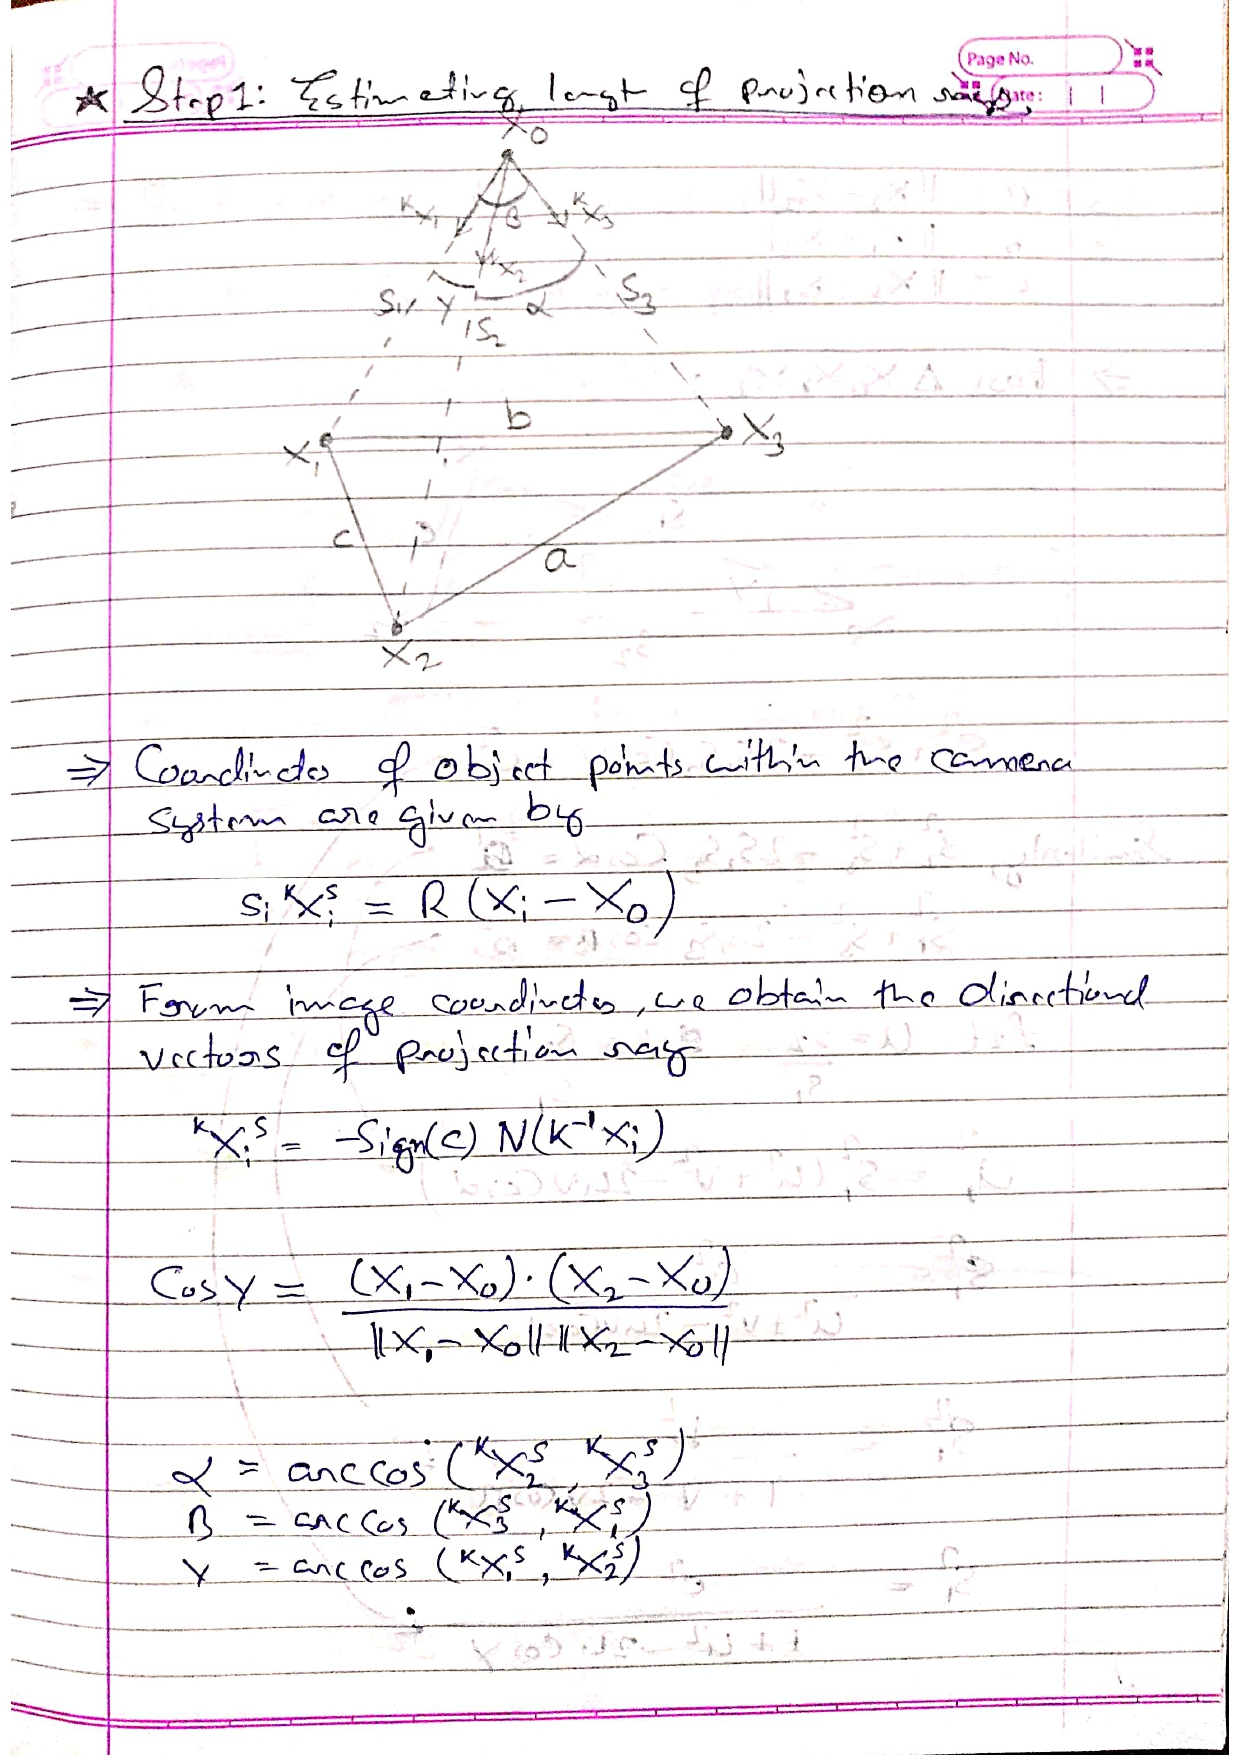 Page No.
Date:
★ Step 1: Estimating lengt of projection rays.
X₀
ᵏX₁ β ᵏX₃
ᵏX₂
S₁ γ α S₃
S₂
b
X₁ X₃
c
a
X₂
⇒ Coordinates of object points within the camera
system are given by
Sᵢ ᵏXᵢˢ = R (Xᵢ − X₀)
⇒ From image coordinates, we obtain the directional
vectors of projection ray
ᵏXᵢˢ = −Sign(c) N(K⁻¹xᵢ)
Cos γ = (X₁−X₀)·(X₂−X₀)
||X₁−X₀|| ||X₂−X₀||
α = arccos (ᵏX₂ˢ, ᵏX₃ˢ)
β = arccos (ᵏX₃ˢ, ᵏX₁ˢ)
γ = arccos (ᵏX₁ˢ, ᵏX₂ˢ)